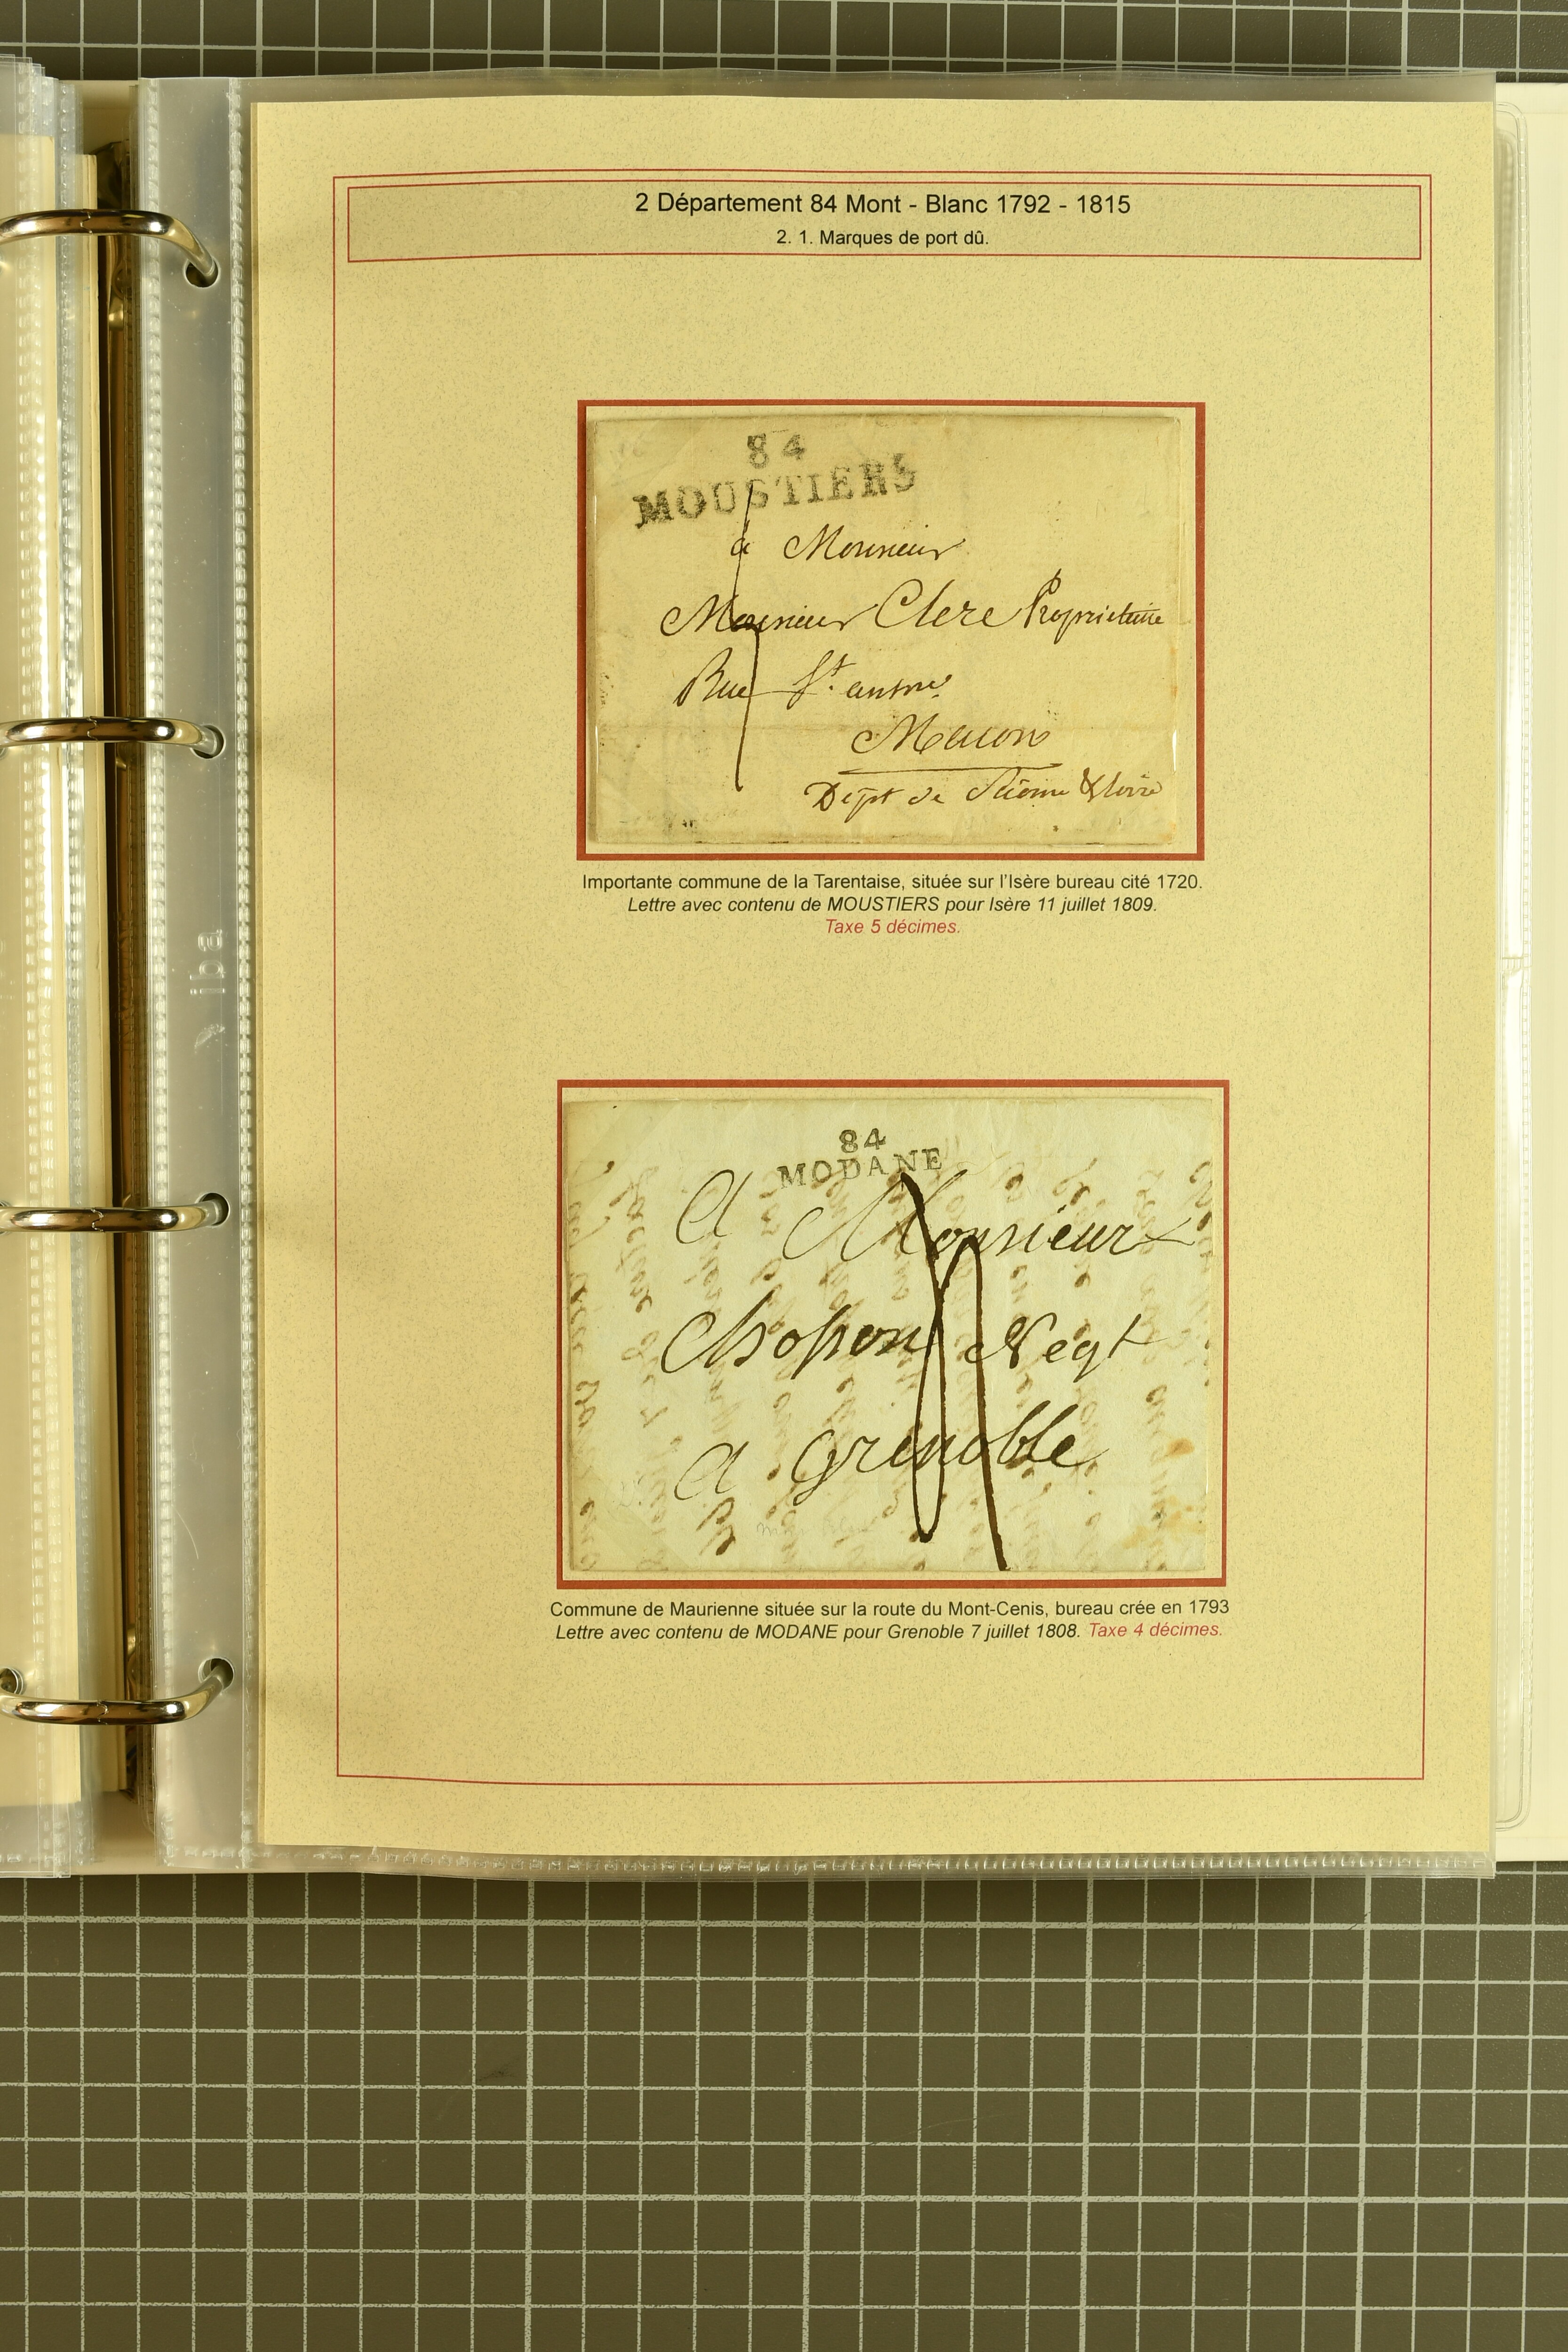 2 Département 84 Mont - Blanc 1792 - 1815
2. 1. Marques de port dû.
84
MOUSTIERS
à Monsieur
Monsieur Clerc Proprietaire
Rue St. antne.
Macon
Dept de Saonne & loire
Importante commune de la Tarentaise, située sur l'Isère bureau cité 1720.
Lettre avec contenu de MOUSTIERS pour Isère 11 juillet 1809.
Taxe 5 décimes.
84
MODANE
A Monsieur
Chosson Negt
a grenoble
Commune de Maurienne située sur la route du Mont-Cenis, bureau crée en 1793
Lettre avec contenu de MODANE pour Grenoble 7 juillet 1808. Taxe 4 décimes.
iba